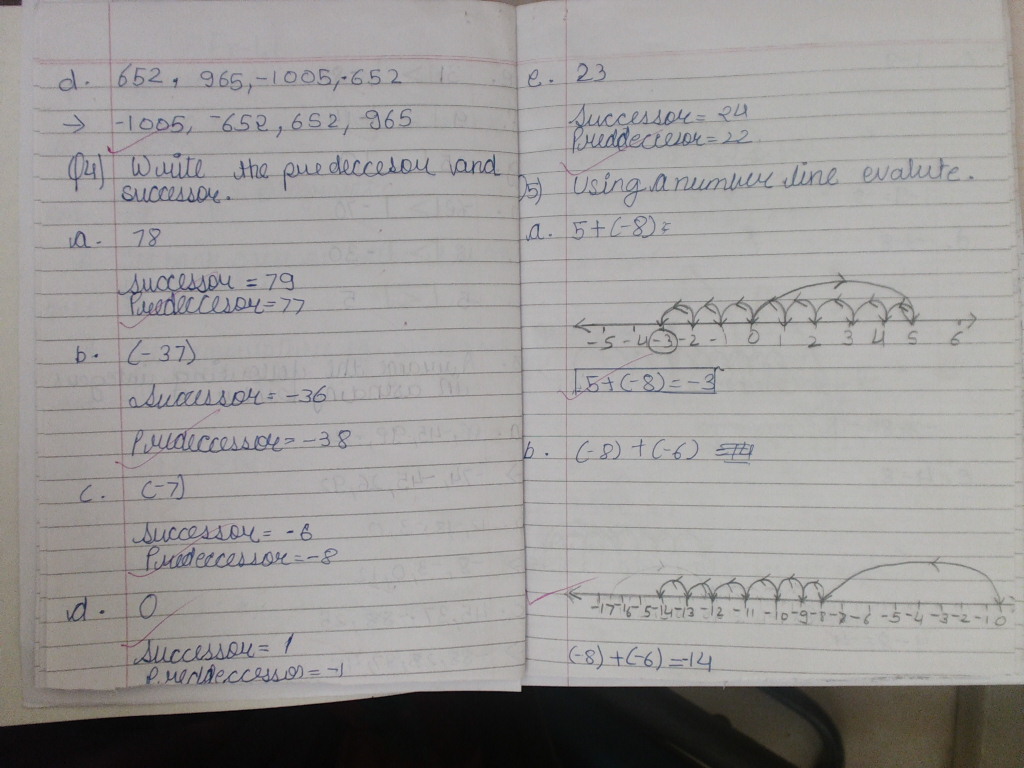 d. 652, 965, -1005, -652
→ -1005, -652, 652, 965
Q4) Write the predeccesor and
successor.
a. 78
Successor = 79
Predeccesor = 77
b. (-37)
Successor = -36
Predeccessor = -38
c. (-7)
Successor = -6
Predeccessor = -8
d. 0
Successor = 1
Preddeccessor = -1
e. 23
Successor = 24
Preddeccesor = 22
5) Using a number line evalute.
a. 5+(-8) =
-5 -4 -3 -2 -1 0 1 2 3 4 5 6
5+(-8) = -3
b. (-8) + (-6)
-17 -16 -15 -14 -13 -12 -11 -10 -9 -8 -7 -6 -5 -4 -3 -2 -1 0
(-8) + (-6) = -14